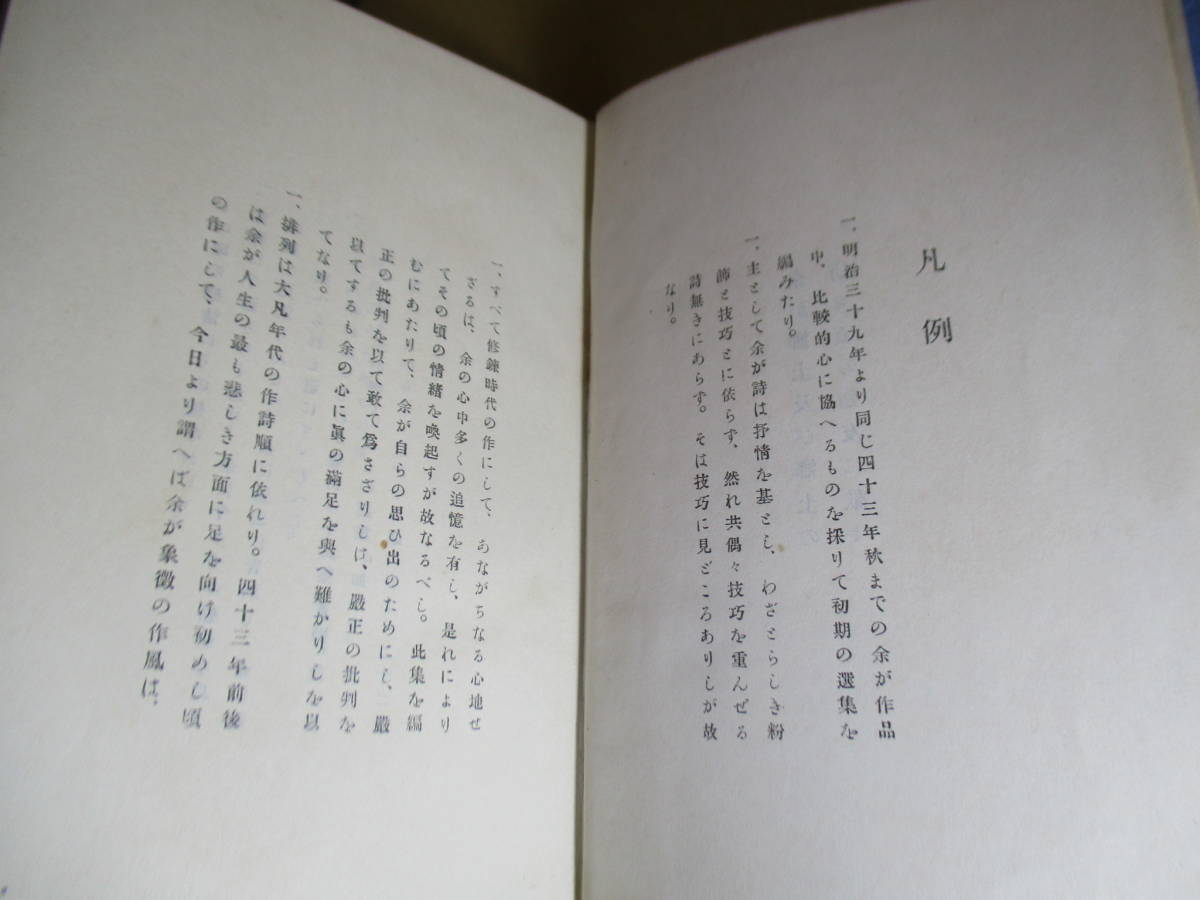 凡例
一、明治三十九年より同じ四十三年秋までの余が作品
中、比較的心に協へるものを採りて初期の選集を
編みたり。
一、主として余が詩は抒情を基とし、わざとらしき粉
飾と技巧とに依らず、然れ共偶々技巧を重んぜる
詩無きにあらず。そは技巧に見どころありしが故
なり。
一、すべて修錬時代の作にして、あながちなる心地せ
ざるは、余の心中多くの追憶を有し、是れにより
てその頃の情緒を喚起すが故なるべし。此集を編
むにあたりて、余が自らの思ひ出のためにし、嚴
正の批判を以て敢て爲さざりしは、嚴正の批判を
以てするも余の心に眞の滿足を與へ難かりしを以
てなり。
一、排列は大凡年代の作詩順に依れり。四十三年前後
は余が人生の最も悲しき方面に足を向け初めし頃
の作にして、今日より謂へば余が象徴の作風は、